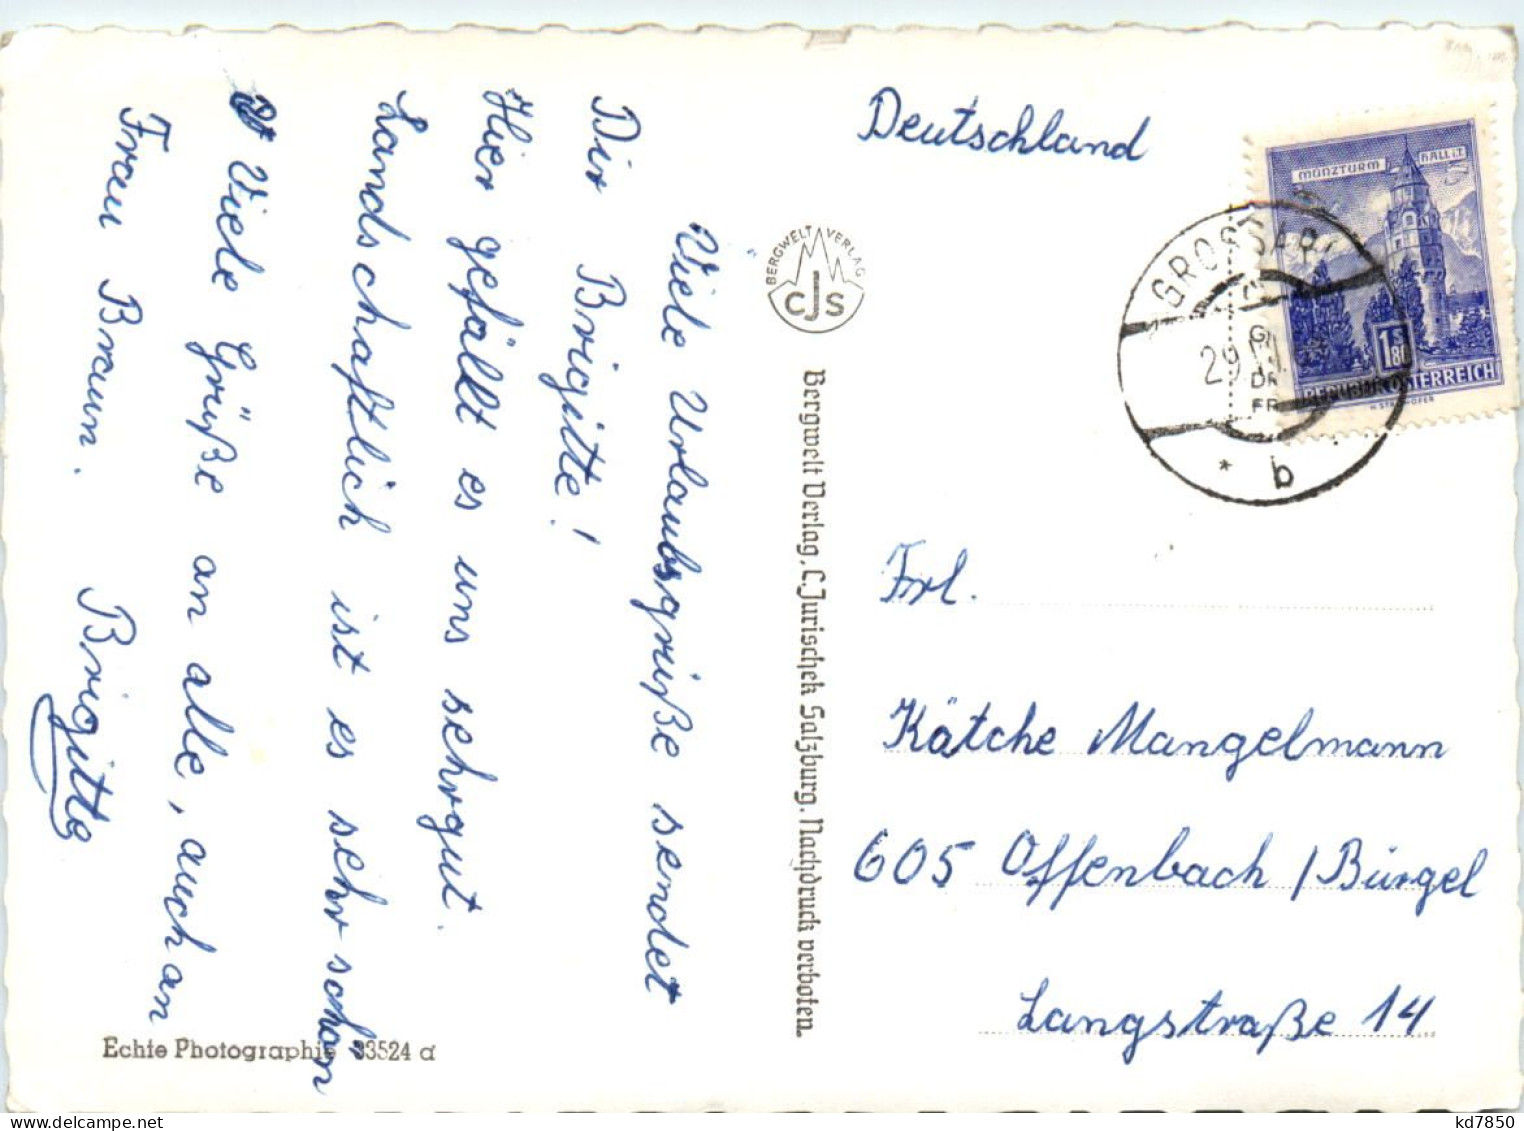 Viele Urlaubsgrüße sendet
Dir Brigitte!
Hier gefällt es uns sehrgut.
Landschaftlich ist es sehr schön
Viele Grüße an alle, auch an
Frau Braun. Brigitte
Echte Photographie 33524 a
BERGWELT VERLAG
CJS
Bergwelt Verlag, C. Jurischek Salzburg. Nachdruck verboten.
Deutschland
MÜNZTURM HALL i.T.
S 1.80
REPUBLIK ÖSTERREICH
GROSSAR
29
* b
Frl.
Kätche Mangelmann
605 Offenbach / Bürgel
Langstraße 14
kd7850